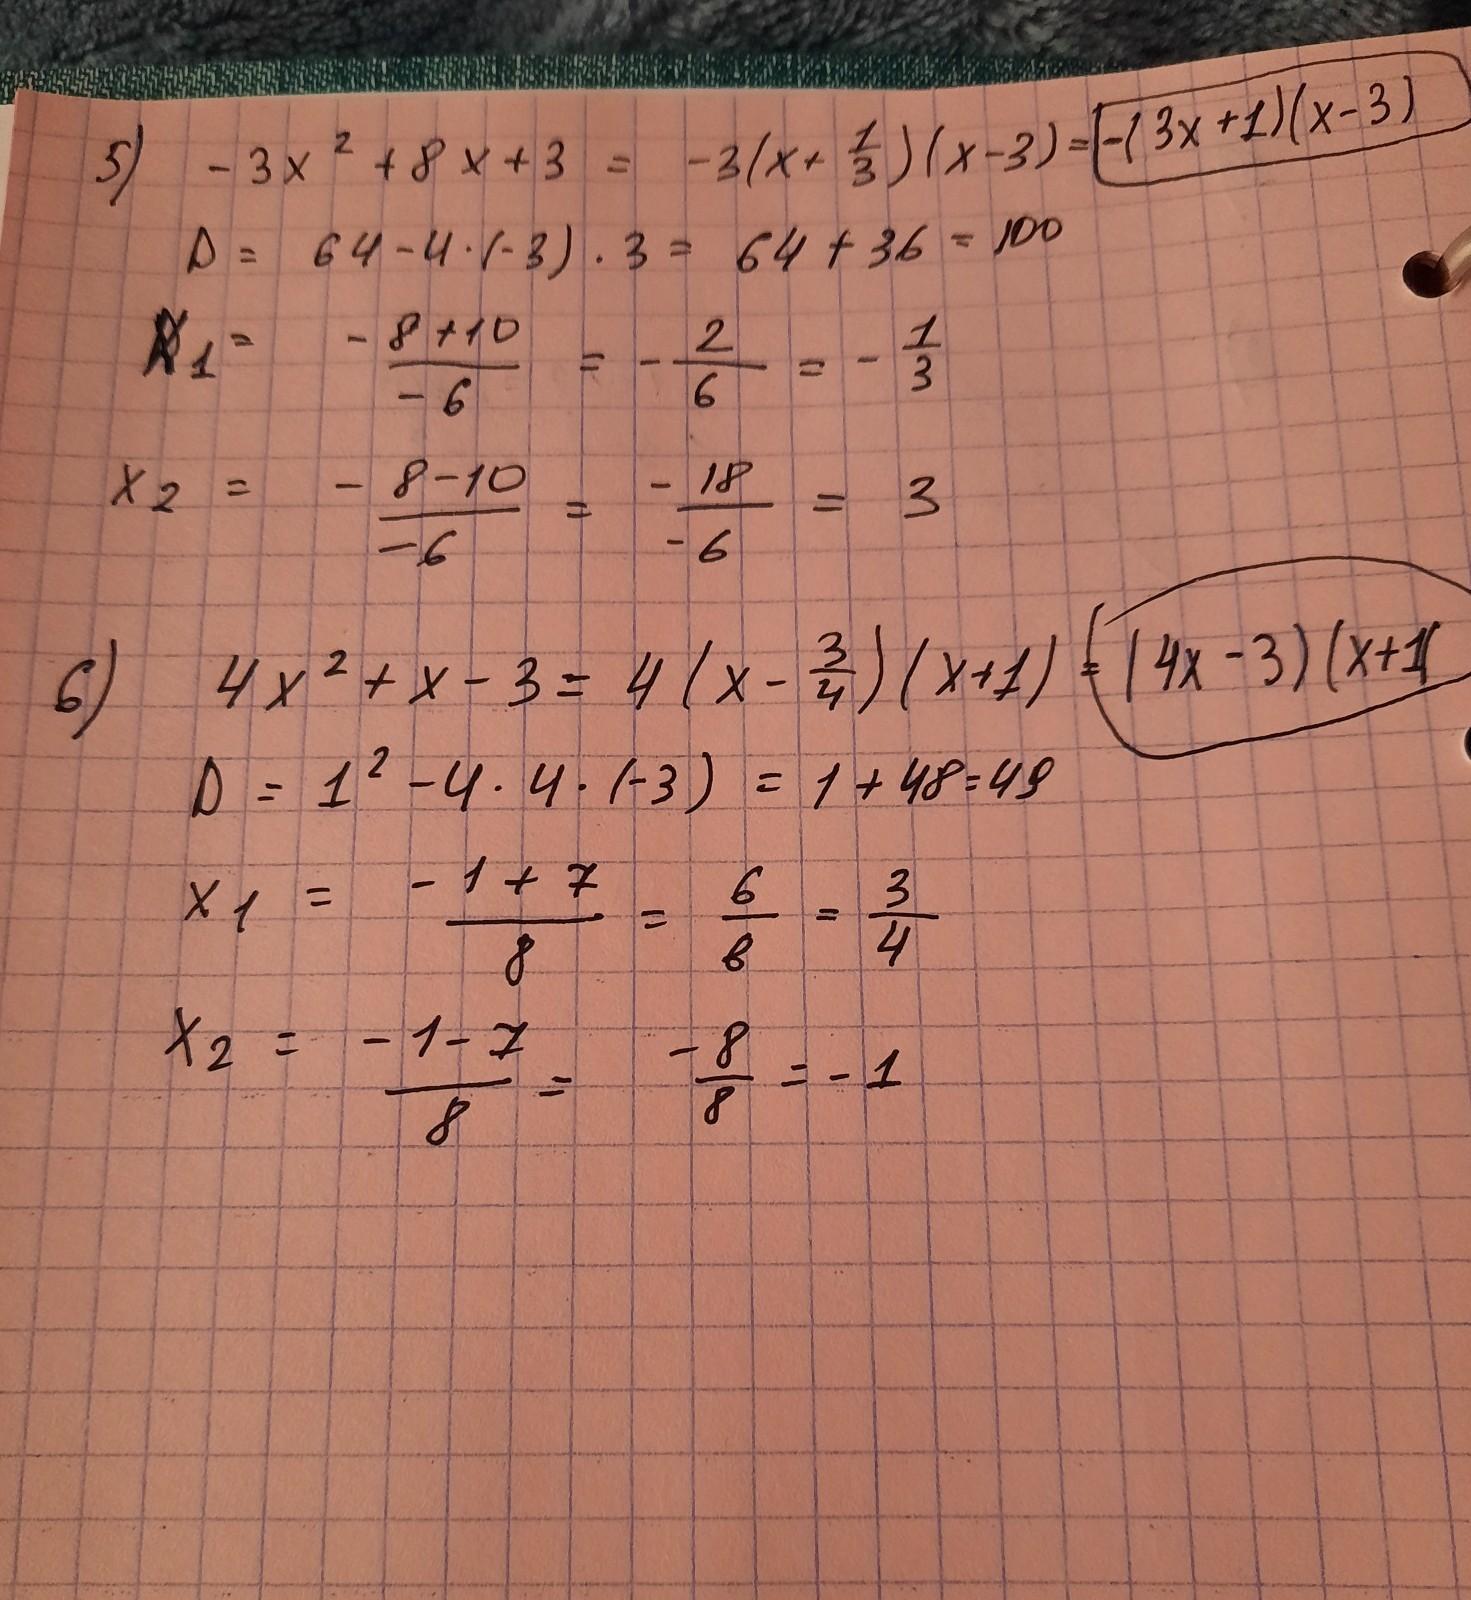 5) -3x² + 8x + 3 = -3(x + 1/3)(x - 3) = -(3x + 1)(x - 3)
D = 64 - 4 · (-3) · 3 = 64 + 36 = 100
x₁ = (-8 + 10)/(-6) = -2/6 = -1/3
x₂ = (-8 - 10)/(-6) = -18/-6 = 3
6) 4x² + x - 3 = 4(x - 3/4)(x + 1) = (4x - 3)(x + 1)
D = 1² - 4 · 4 · (-3) = 1 + 48 = 49
x₁ = (-1 + 7)/8 = 6/8 = 3/4
x₂ = (-1 - 7)/8 = -8/8 = -1